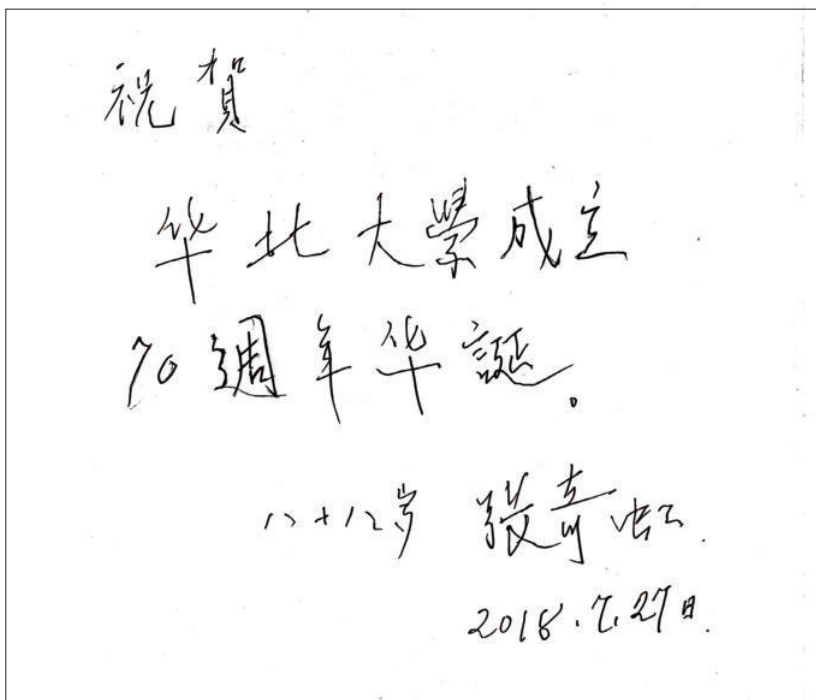 祝賀
华北大學成立
70週年华誕。
八十八岁 張奇虹
2018.7.27日.